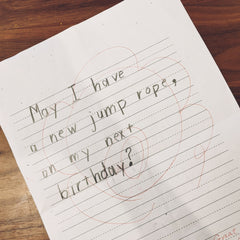 May I have
a new jump rope,
on my next
birthday?